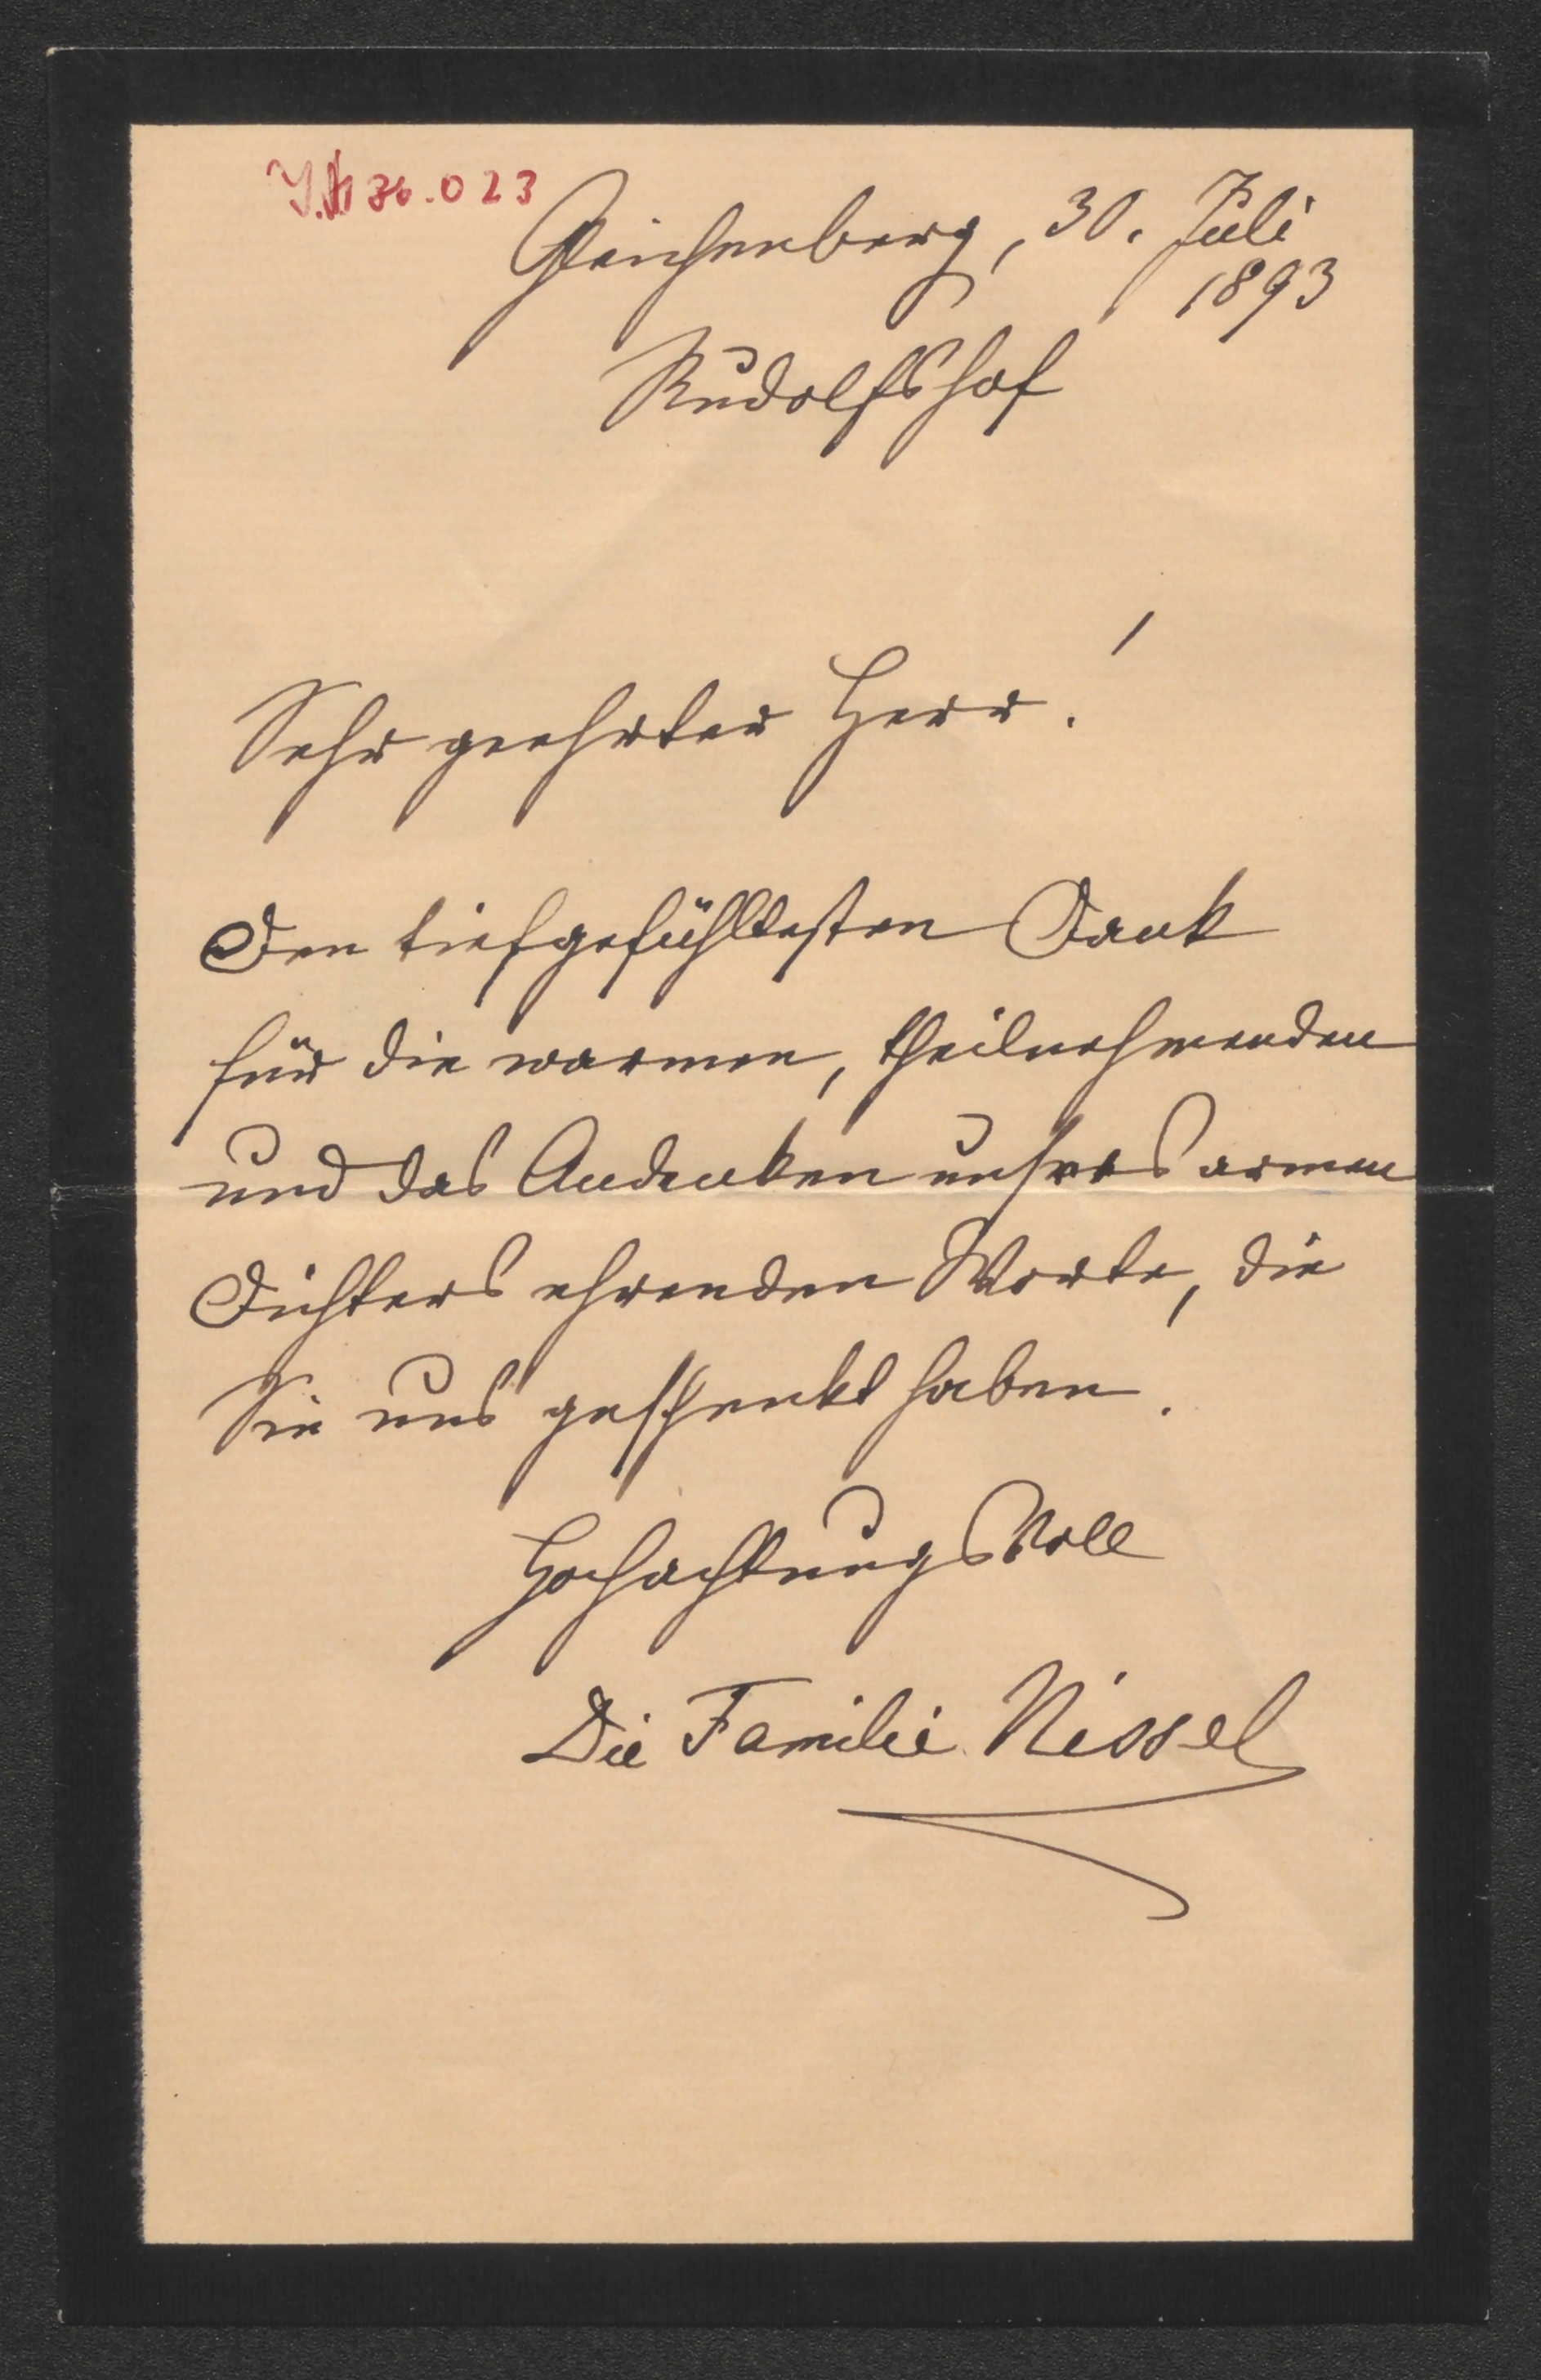 I.N 36.023
Gleichenberg, 30. Juli
1893
Rudolfshof
Sehr geehrter Herr!
Den tiefgefühltesten Dank
für die warmen, theilnehmenden
und das Andenken unsres armen
Dichters ehrenden Worte, die
Sie uns geschenkt haben.
Hochachtungsvoll
Die Familie Nissel